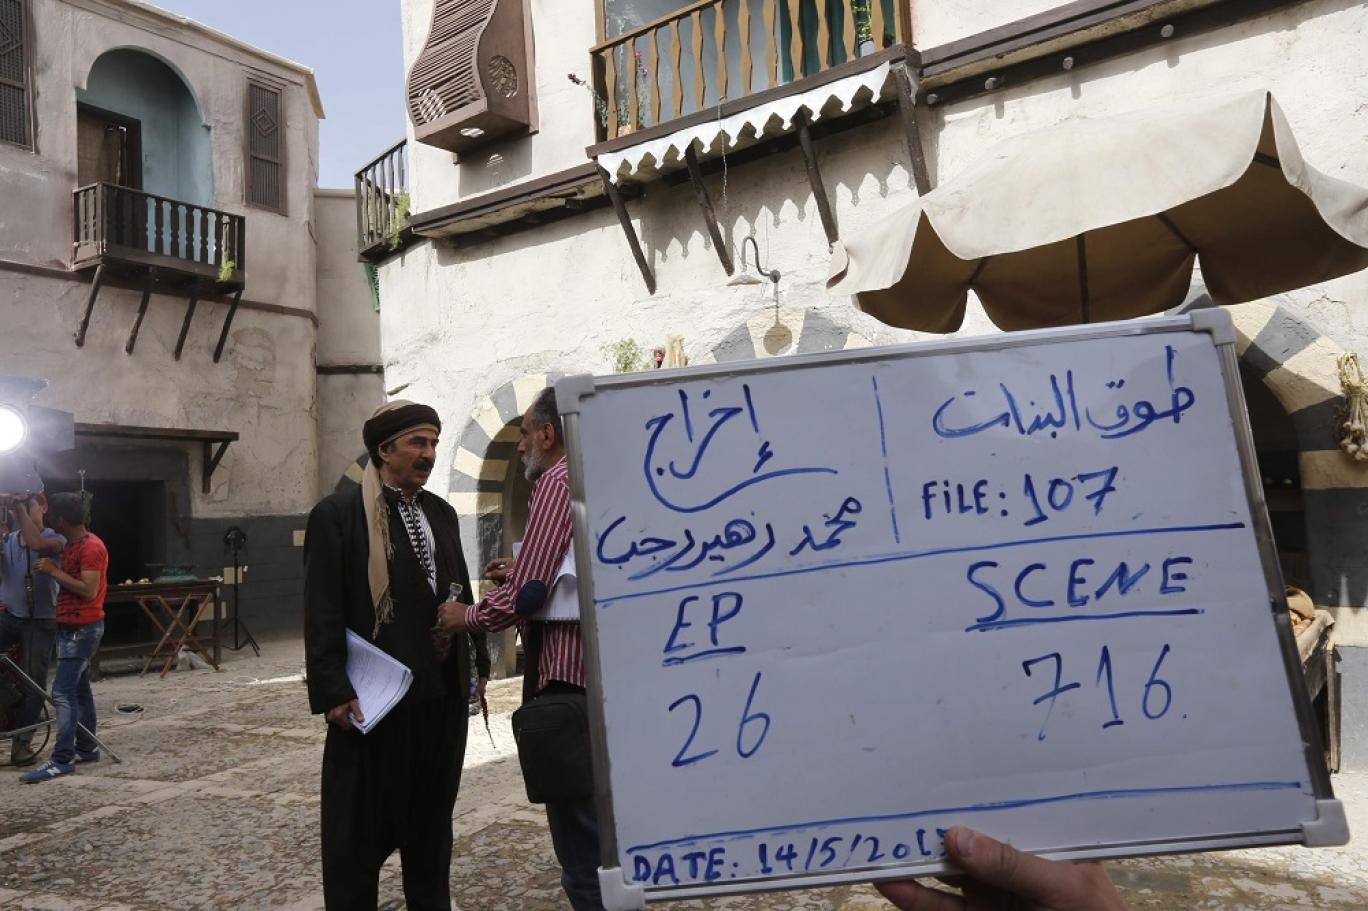 طوق البنات
FiLE: 107
إخراج
محمد زهير رجب
SCENE
716
EP
26
DATE: 14/5/201